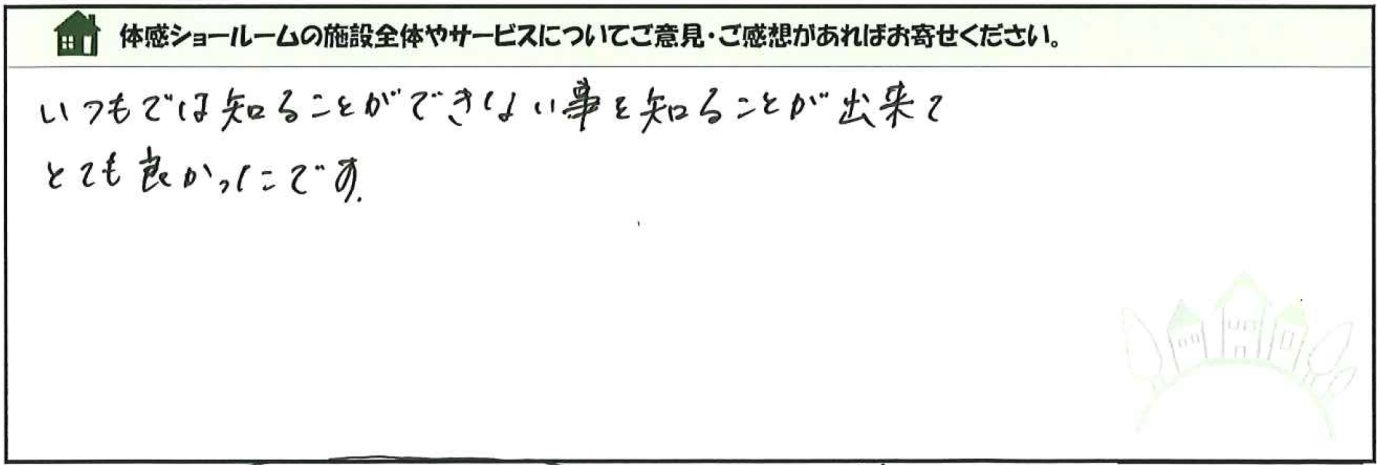 体感ショールームの施設全体やサービスについてご意見・ご感想があればお寄せください。
いつもでは知ることができない事を知ることが出来て
とても良かったです.